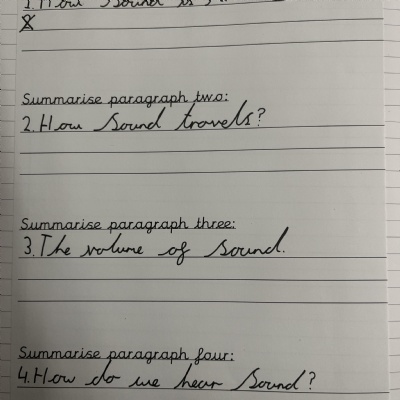 1. How Sound is
Summarise paragraph two:
2. How Sound travels?
Summarise paragraph three:
3. The volume of Sound.
Summarise paragraph four:
4. How do we hear Sound?